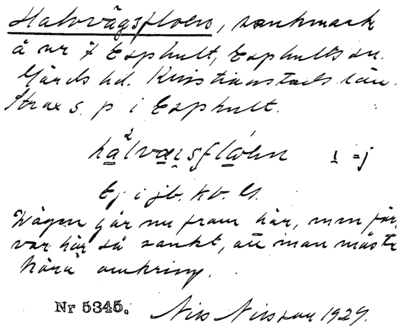 Halvvägsfloen, sankmark
å nr 7 Esphult, Esphults sn.
Gärds hd. Kristianstads län.
Strax s. p i Esphult.
hal²vaɪsfloen ɪ =j
Ej i jb. kb. U.
Vägen går nu fram här, men förr
var här så sankt, att man måste
köra omkring.
Nr 5345. Nils Nilsson 1929.